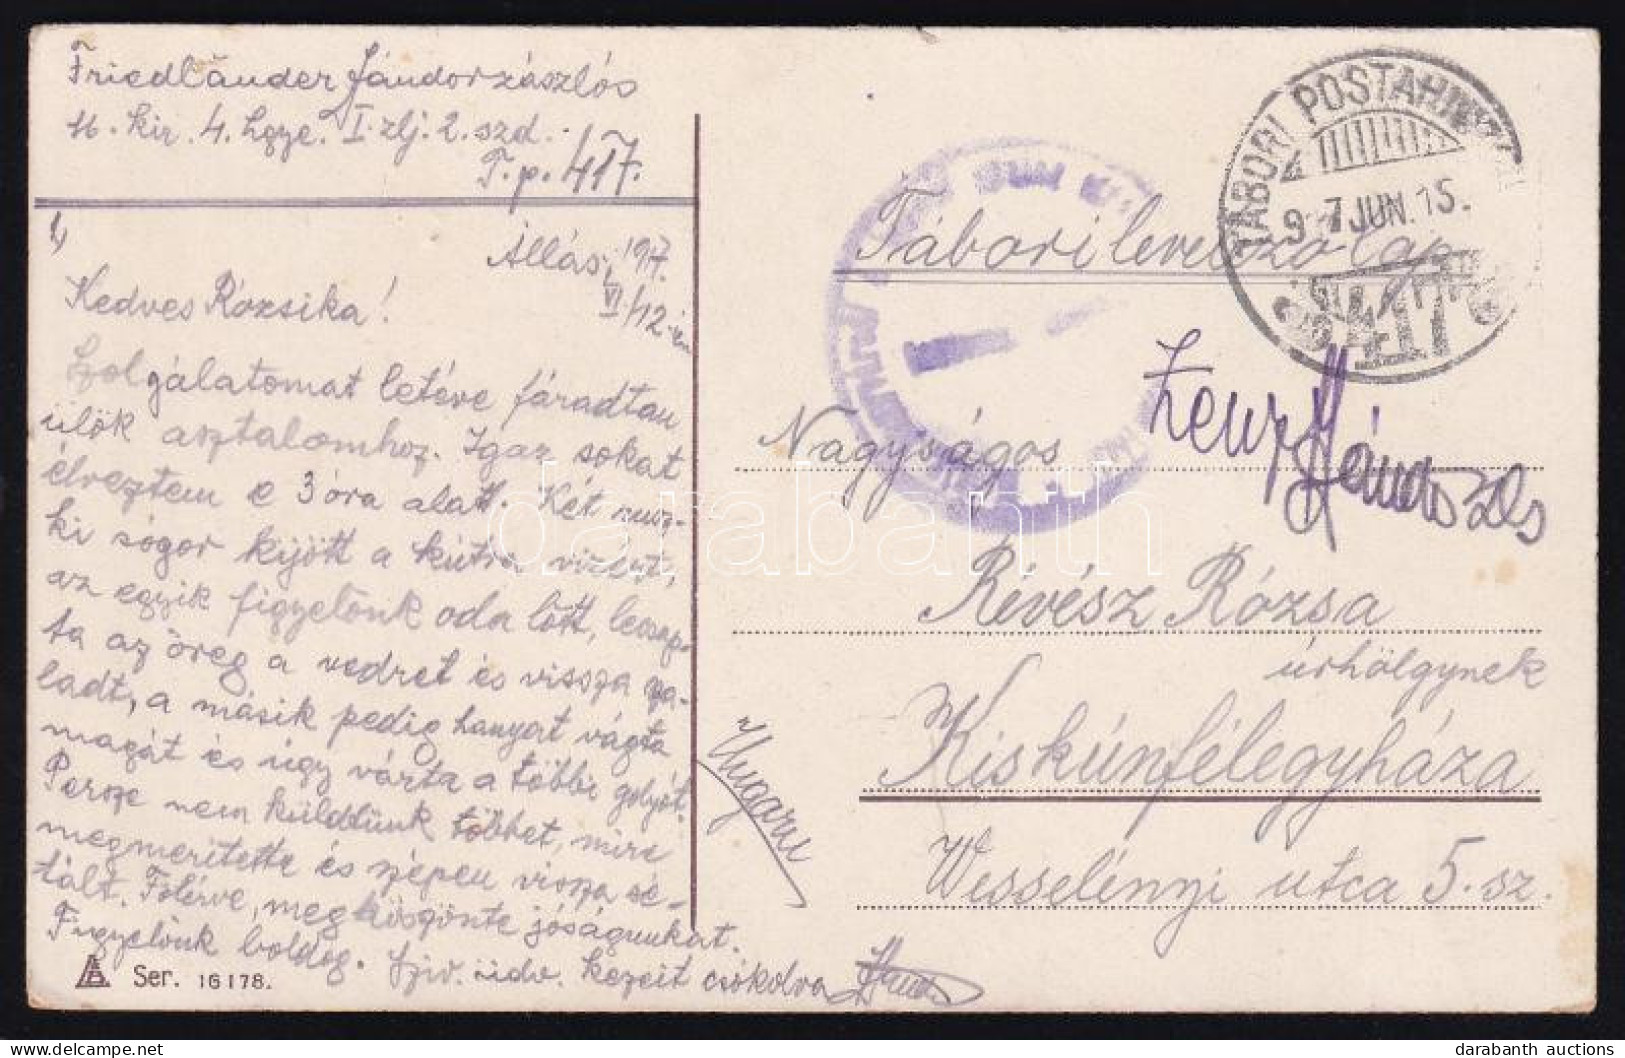 Friedländer Sándor zászlós
M. kir. 4. hgye. I. zlj. 2. szd.
T.p. 417.
1,)
Állás, 1917.
VI/12-én
Kedves Rózsika!
Szolgálatomat letéve fáradtan
ülök asztalomhoz. Igaz sokat
élveztem e 3 óra alatt. Két rusz-
ki sógor kijött a kútra vizért,
az egyik figyelőnk oda lőtt, lecsap-
ta az öreg a vedret és vissza sza-
ladt, a másik pedig hanyat vágta
magát és úgy várta a többi golyót.
Persze nem küldtünk többet, mire
megmerítette és szépen vissza sé-
tált. Fölérve, megköszönte jóságunkat.
Figyelőnk boldog. Szív. üdv. kezeit csókolva
Ser. 16178.
TÁBORI POSTAHIVATAL
917 JUN. 15.
417
Tábori levelező lap
Nagyságos
Révész Rózsa
úrhölgynek
Kiskúnfélegyháza
Wesselényi utca 5. sz.
Hugaru
darabanth
darabanth auctions